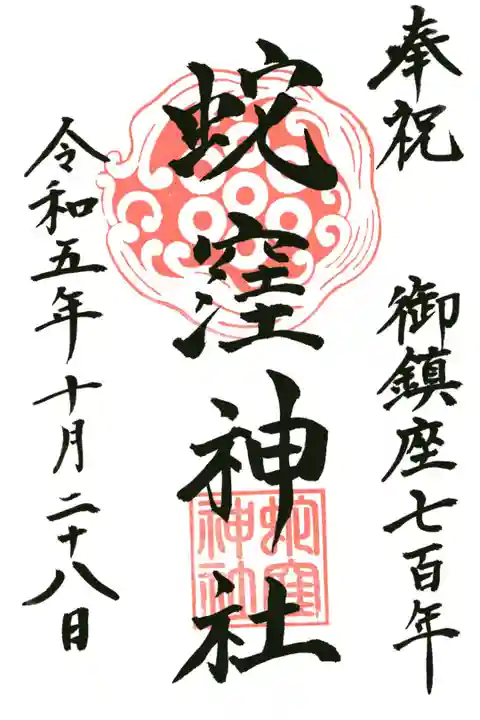 奉祝　御鎮座七百年
蛇窪神社
蛇窪神社
令和五年十月二十八日